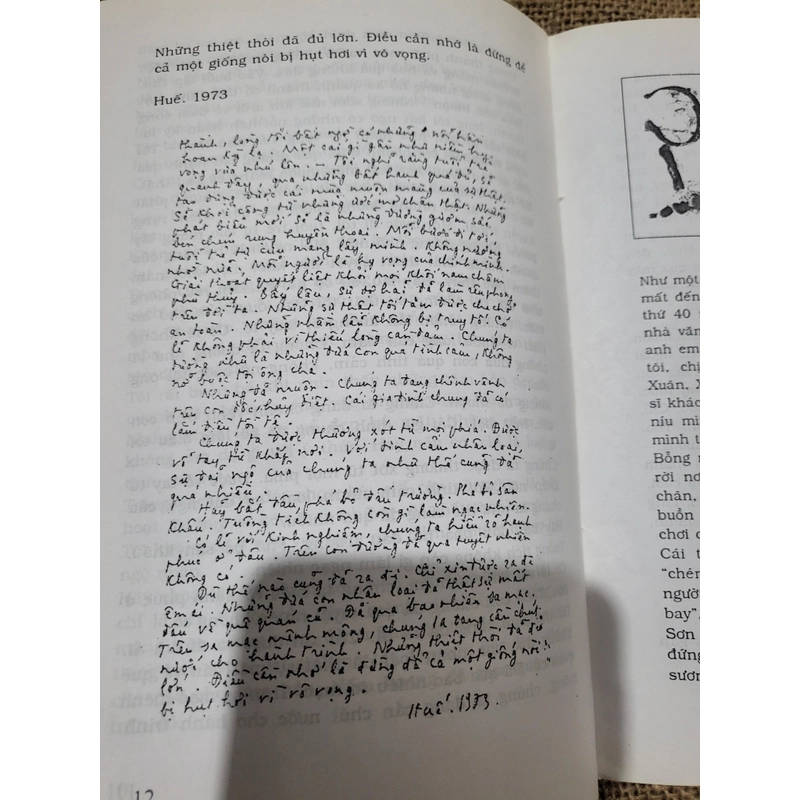 Những thiệt thòi đã đủ lớn. Điều cần nhớ là đừng để
cả một giống nòi bị hụt hơi vì vô vọng.
Huế. 1973
thành, lòng tôi bất ngờ có những nỗi hân
hoan kỳ lạ. Một cái gì gần như niềm hy
vọng vừa nhú lên. – Tôi nghĩ rằng tuổi trẻ
quanh đây, qua những bất hạnh quá đủ, sẽ
tạo dựng được cái mùa muộn màng của sự thật.
Sẽ khởi công từ những ước mơ chân thật. Những
phát biểu mới sẽ là những đường gươm sắc
bén chém rụng huyền thoại. Mỗi bước đi tới,
tuổi trẻ tự cưu mang lấy mình. Không nương
nhờ nữa. Mỗi người là hy vọng của chính mình.
Giải thoát quyết liệt khỏi mọi khối nam châm
phù thủy. Bấy lâu, sự sợ hãi đã làm rêu phong
trên đời ta. Những sự thật tồi tàn được che chở
an toàn. Những nhầm lẫn không bị truy tố. Có
lẽ không phải vì thiếu lòng can đảm. Chúng ta
dường như là những đứa con quá tình cảm, không
nỡ buộc tội ông cha.
Nhưng đã muộn. Chúng ta đang chênh vênh
trên con dốc hủy diệt. Cái gia đình chung đã có
lắm điều tồi tệ.
Chúng ta được thương xót từ mọi phía. Được
vỗ tay từ khắp nơi. Với tình cảm nhân loại,
sự đãi ngộ của chúng ta như thế cũng đã
quá nhiều.
Hãy bắt đầu, phá bỏ đấu trường. Phá bỏ sân
khấu. Tuồng tích không còn gì làm ngạc nhiên.
Có lẽ với kinh nghiệm, chúng ta hiểu rõ hạnh
phúc ở đâu. Trên con đường đã qua tuyệt nhiên
không có.
Dù thế nào cũng đã ra đi. Chỉ xin được ra đi
êm ái. Những đứa con nhân loại đã thật sự mất
dấu về quê quán cũ. Đã qua bao nhiêu sa mạc.
Trên sa mạc mênh mông, chúng ta tang cần chút
nước cho hành trình. Những thiệt thòi đã đủ
lớn. Điều cần nhớ là đừng để cả một giống nòi
bị hụt hơi vì vô vọng.
Huế. 1973.
12
Như một
mất đến
thứ 40
nhà văn
anh em
tôi, chị
Xuân, X
sĩ khác
níu mì
mình t
Bỗng
rời nơ
chân,
buồn
chơi c
Cái t
“chên
người
bay”,
Sơn
đứng
sươn